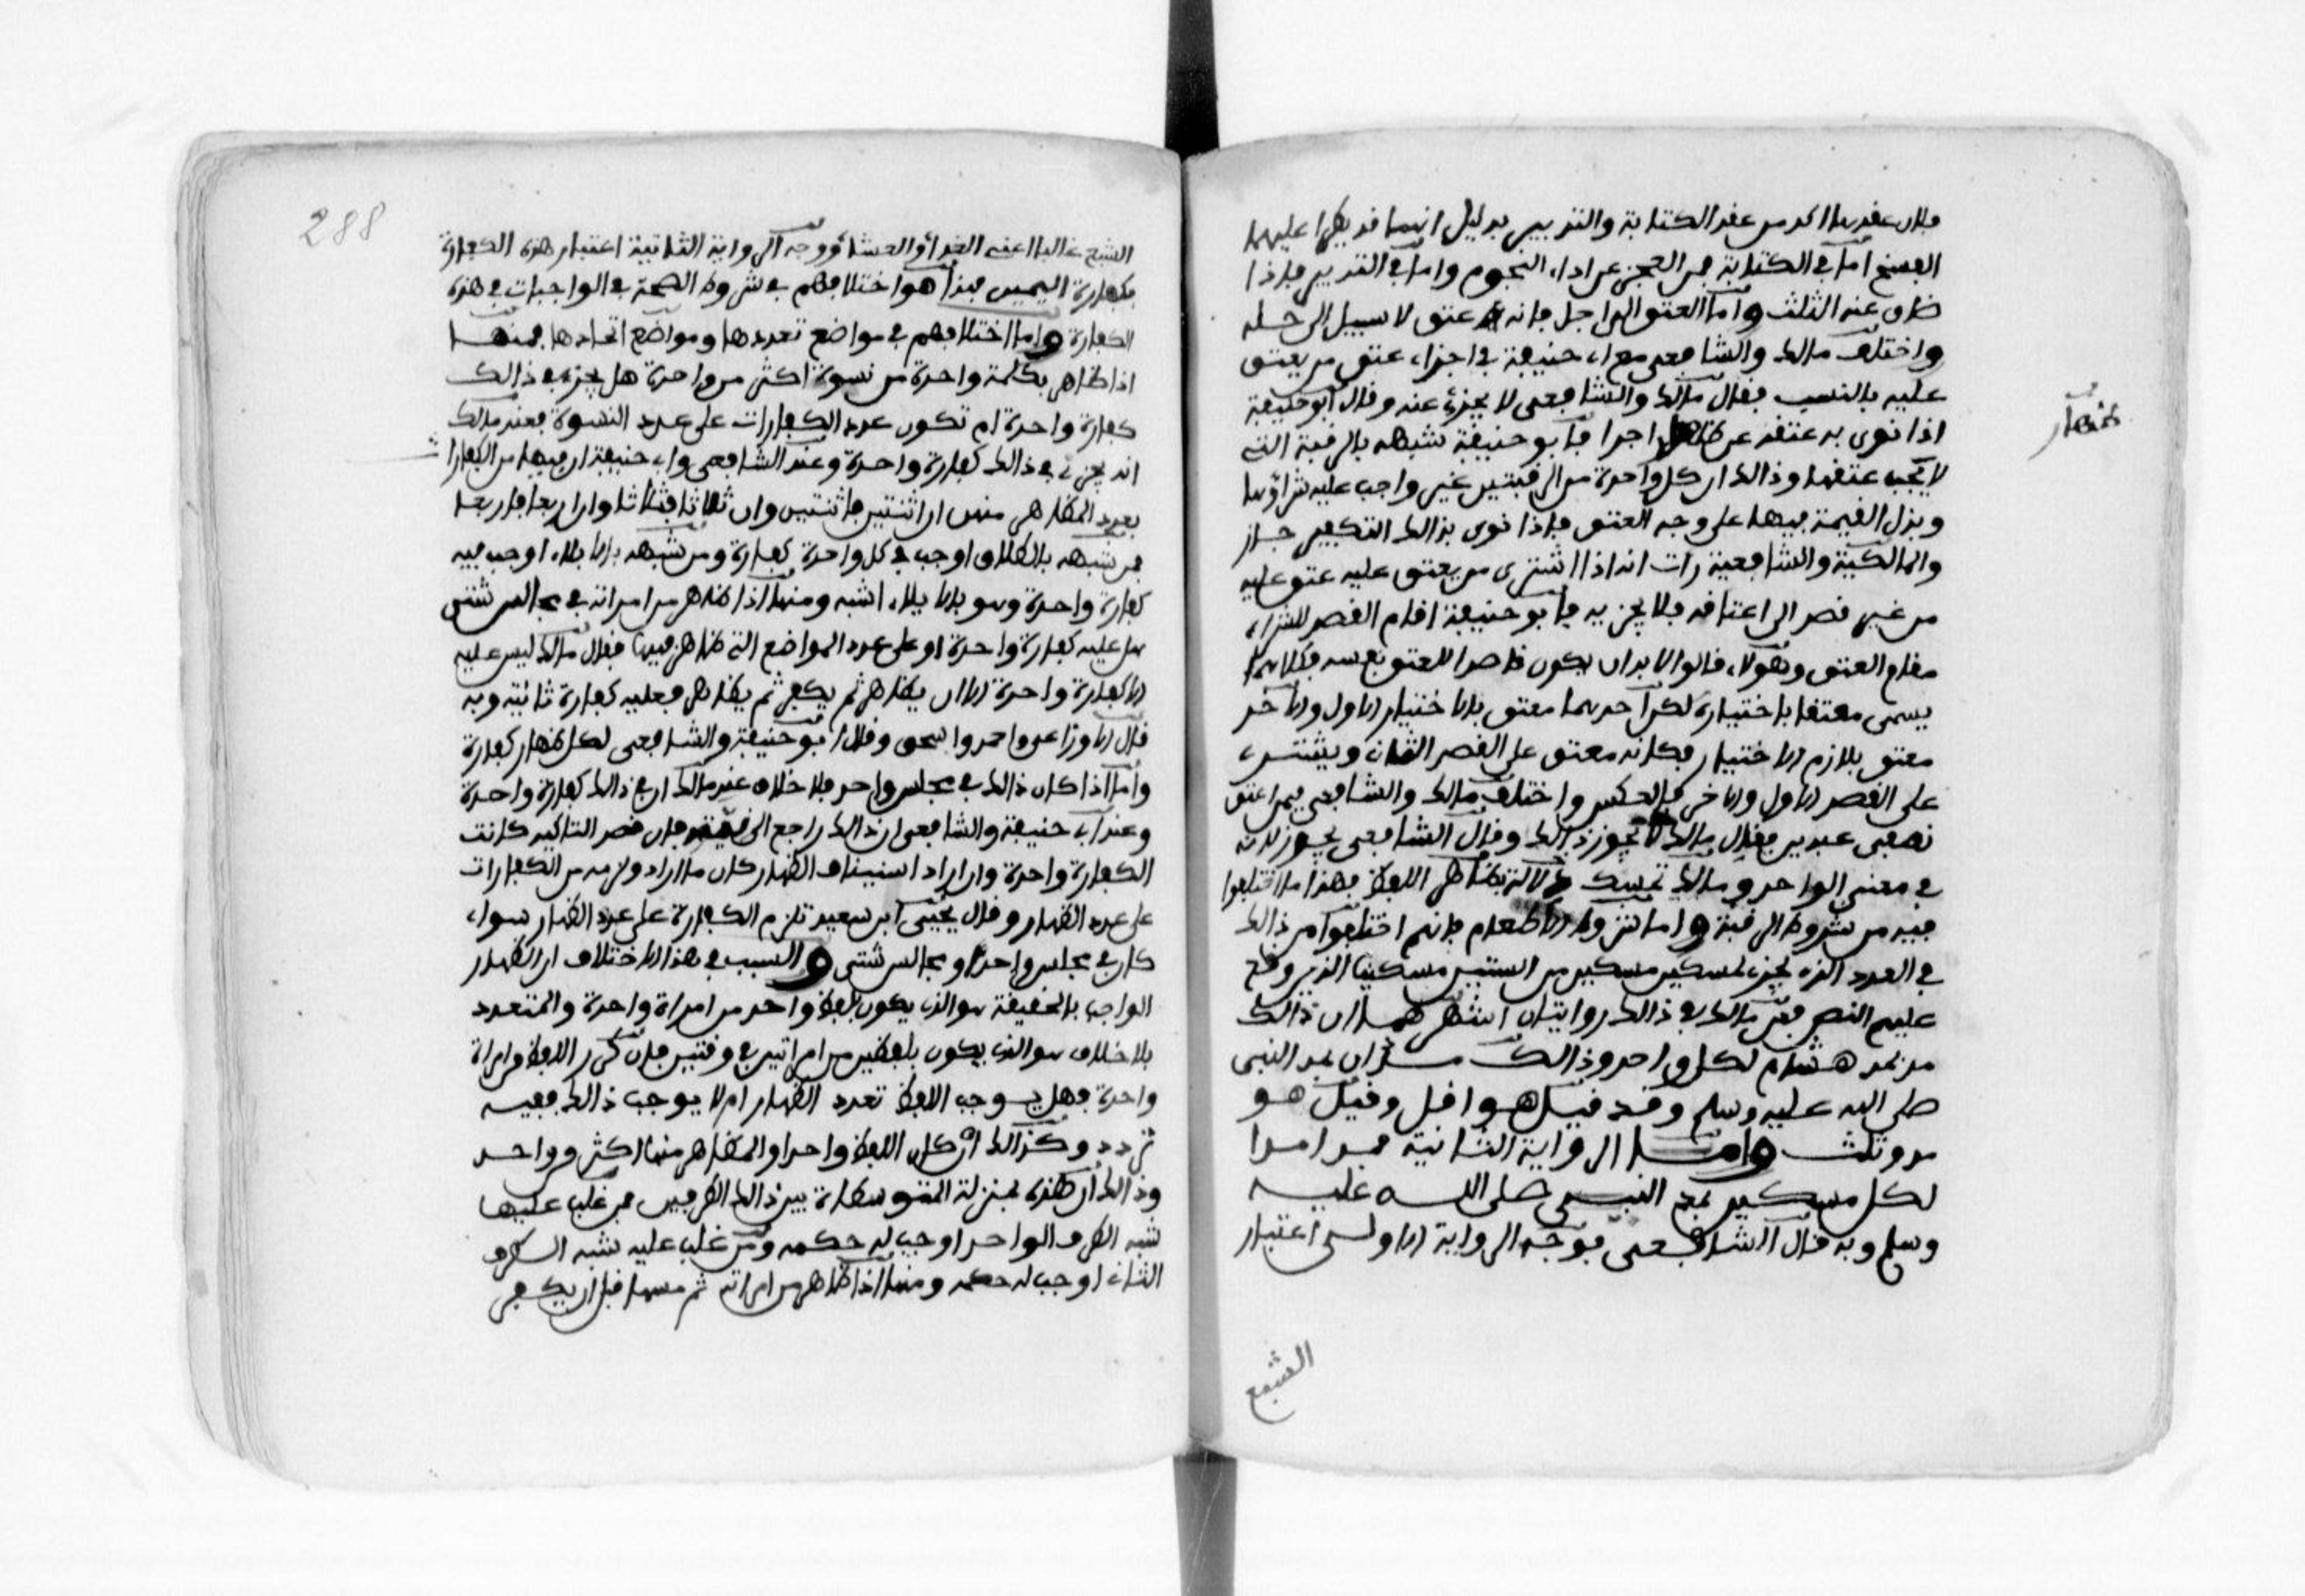 فان عقدها اكد من عقد الكتابة والتدبير بدليل انهما قد يطرا عليهما
الفسخ اما في الكتابة فمن العجز عن اداء النجوم واما في التدبير فاذا
ضاق عنه الثلث واما العتق الى اجل فانه عتق لا سبيل الى حله
واختلف مالك والشافعي مع ابي حنيفة في اجزاء عتق من يعتق
عليه بالنسب فقال مالك والشافعي لا يجزئ عنه وقال ابو حنيفة
اذا نوى به عتقه عن ظهار اجزا فابو حنيفة شبهه بالرقبة التي
لا يجب عتقها وذالك ان كل واحدة من الرقبتين غير واجب عليه شراؤها
وبذل القيمة فيها على وجه العتق فاذا نوى بذالك التكفير جاز
والمالكية والشافعية رات انه اذا اشترى من يعتق عليه عتق عليه
من غير قصد الى اعتاقه فلا يجزيه فابو حنيفة اقام القصد للشراء
مقام العتق وهؤلاء قالوا لا بد ان يكون قاصدا للعتق نفسه فكلاهما
يسمى معتقا باختياره لكن احدهما معتق بالاختيار الاول والاخر
معتق بلازم الاختيار فكانه معتق على القصد الثاني ويشتري
على القصد الاول والاخر بالعكس واختلف مالك والشافعي فيمن اعتق
نصفي عبدين فقال مالك لا يجوز ذالك وقال الشافعي يجوز لانه
في معنى الواحد ومالك تمسك بدلالة ظاهر اللفظ فهذا ما اختلفوا
فيه من شروط الرقبة واما شروط الاطعام فانهم اختلفوا من ذالك
في العدد الذي يجزي لمسكين مسكين من الستين مسكينا الذين وقع
عليهم النص فعن مالك في ذالك روايتان اشهرهما ان ذالك
مد بمد هشام لكل واحد وذالك مدان بمد النبي
صلى الله عليه وسلم وقد قيل هو اقل وقيل هو
مد وثلث واما الرواية الثانية فمد مدا
لكل مسكين بمد النبي صلى الله عليه
وسلم وبه قال الشافعي فوجه الرواية الاولى اعتبار
الشبع
ظهار
288
الشبع غالبا اعني الغداء والعشاء ووجه الرواية الثانية اعتبار هذه الكفارة
بكفارة اليمين فهذا هو اختلافهم في شروط الصحة في الواجبات في هذه
الكفارة واما اختلافهم في مواضع تعددها ومواضع اتحادها فمنها
اذا ظاهر بكلمة واحدة من نسوة اكثر من واحدة هل يجزي في ذالك
كفارة واحدة ام تكون عدد الكفارات على عدد النسوة فعند مالك
انه يجزي في ذالك كفارة واحدة وعند الشافعي وابي حنيفة ان فيها من الكفارات
بعدد المظاهر منهن ان اثنتين فاثنتين وان ثلاثا فثلاثا وان اربعا فاربعا
فمن شبهه بالطلاق اوجب في كل واحدة كفارة ومن شبهه بالايلاء اوجب فيه
كفارة واحدة وهو بالايلاء اشبه ومنها اذا ظاهر من امراته في مجالس شتى
هل عليه كفارة واحدة او على عدد المواضع التي ظاهر فيها فقال مالك ليس عليه
الا كفارة واحدة الا ان يظاهر ثم يكفر ثم يظاهر فعليه كفارة ثانية وبه
قال الاوزاعي واحمد واسحق وقال ابو حنيفة والشافعي لكل ظهار كفارة
واما اذا كان ذالك في مجلس واحد فلا خلاف عند مالك ان في ذالك كفارة واحدة
وعند ابي حنيفة والشافعي ان ذالك راجع الى نيته فان قصد التاكيد كانت
الكفارة واحدة وان اراد استيناف الظهار كان ما اراد ولزمه من الكفارات
على عدد الظهار وقال يحيى ابن سعيد تلزم الكفارة على عدد الظهار سواء
كان في مجلس واحد او مجالس شتى والسبب في هذا الاختلاف ان الظهار
الواحد بالحقيقة هو الذي يكون بلفظ واحد من امراة واحدة والمتعدد
بلا خلاف هو الذي يكون بلفظين من امراتين في وقتين فان كرر اللفظ من امراة
واحدة فهل يوجب اللفظ تعدد الظهار ام لا يوجب ذالك ففيه
تردد وكذالك ان كان اللفظ واحدا والمظاهر منها اكثر من واحد
وذالك ان هذه بمنزلة المتوسطات بين ذالك الطرفين فمن غلب عليها
شبه الطرف الواحد اوجب له حكمه ومن غلب عليه شبه الطرف
الثاني اوجب له حكمه ومنها اذا ظاهر من امراته ثم مسها قبل ان يكفر